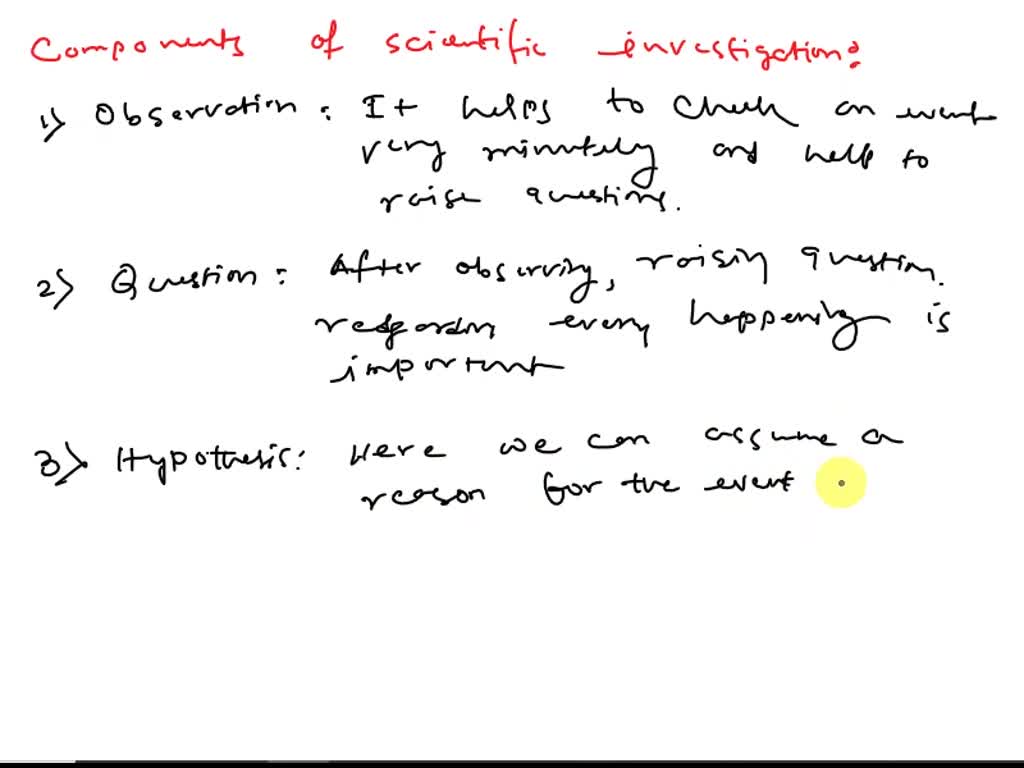 Components of scientific investigation:
1) Observation : It helps to check an event
very minutely and help to
raise questions.
2) Question : After observing, raising question
regarding every happening is
important
3) Hypothesis: Here we can assume a
reason for the event